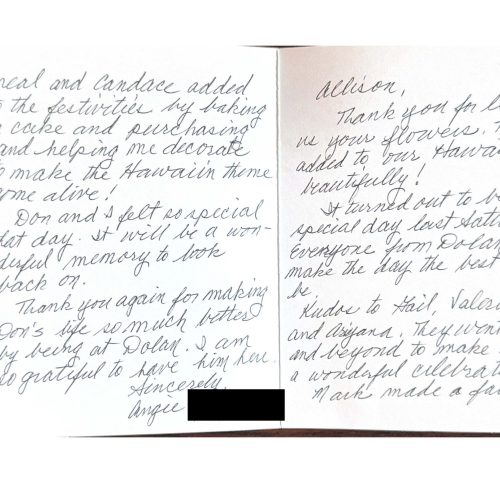 neal and Candace added
the festivities by baking
cake and purchasing
and helping me decorate
make the Hawaiin theme
ome alive!
Don and I felt so special
hat day. It will be a won-
derful memory to look
back on.
Thank you again for making
Don's life so much better
by being at Dolan. I am
so grateful to have him here.
Sincerely,
Angie
Allison,
Thank you for l
us your flowers. T
added to our Hawai
beautifully!
It turned out to be
special day last Satu
Everyone from Dolan
make the day the best
be.
Kudos to Gail, Valeri
and Aryana. They went
and beyond to make
a wonderful celebrat
Mark made a fa